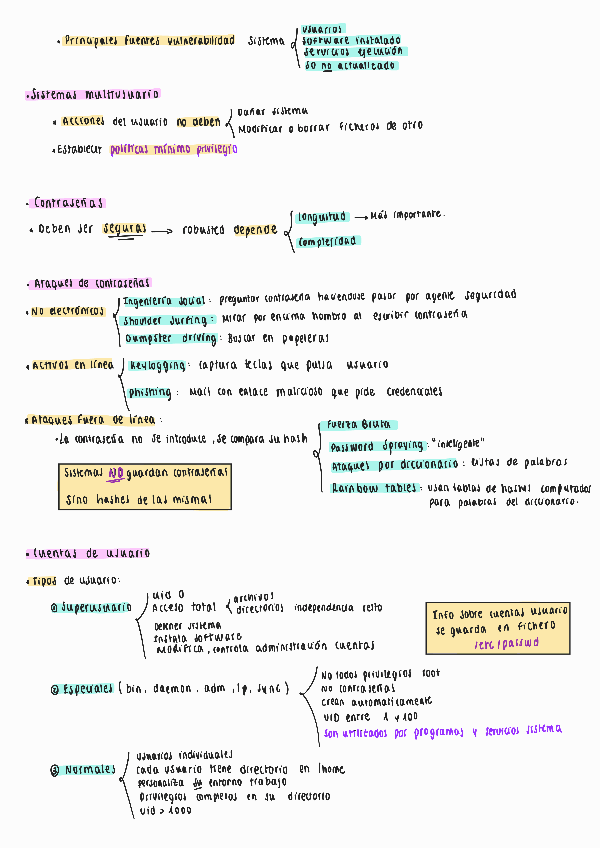 • Principales fuentes vulnerabilidad sistema
usuarios
software instalado
servicios ejecución
SO no actualizado
• Sistemas multiusuario
• Acciones del usuario no deben
Dañar sistema
Modificar o borrar ficheros de otro
• Establecer políticas mínimo privilegio
• Contraseñas
• Deben ser seguras → robusted depende
Longuitud → Más importante.
Complejidad
• Ataques de contraseñas
• No electrónicos
Ingeniería social: preguntar contraseña haciendose pasar por agente seguridad
Shoulder Surfing: Mirar por encima hombro al escribir contraseña
Dumpster driving: Buscar en papeleras
• Activos en línea
Keylogging: captura teclas que pulsa usuario
Phishing: Mail con enlace malicioso que pide credenciales
• Ataques fuera de línea:
• La contraseña no se introduce, se compara su hash
Fuerza Bruta
Password Spraying: "inteligente"
Ataques por diccionario: listas de palabras
Rainbow tables: usan tablas de hashes computador
para palabras del diccionario.
Sistemas NO guardan contraseñas
Sino hashes de las mismas
• Cuentas de usuario
• Tipos de usuario:
① Superusuario
uid 0
Acceso total
archivos
directorios independencia resto
Detener sistema
Instala software
Modifica, controla administración cuentas
Info sobre cuentas usuario
se guarda en fichero
/etc/passwd
② Especiales (bin, daemon, adm, lp, sync)
No todos privilegios root
No contraseñas
Crean automaticamente
UID entre 1 y 100
Son utilizados por programas y servicios sistema
③ Normales
Usuarios individuales
Cada usuario tiene directorio en /home
personaliza su entorno trabajo
Privilegios completos en su directorio
Uid > 1000